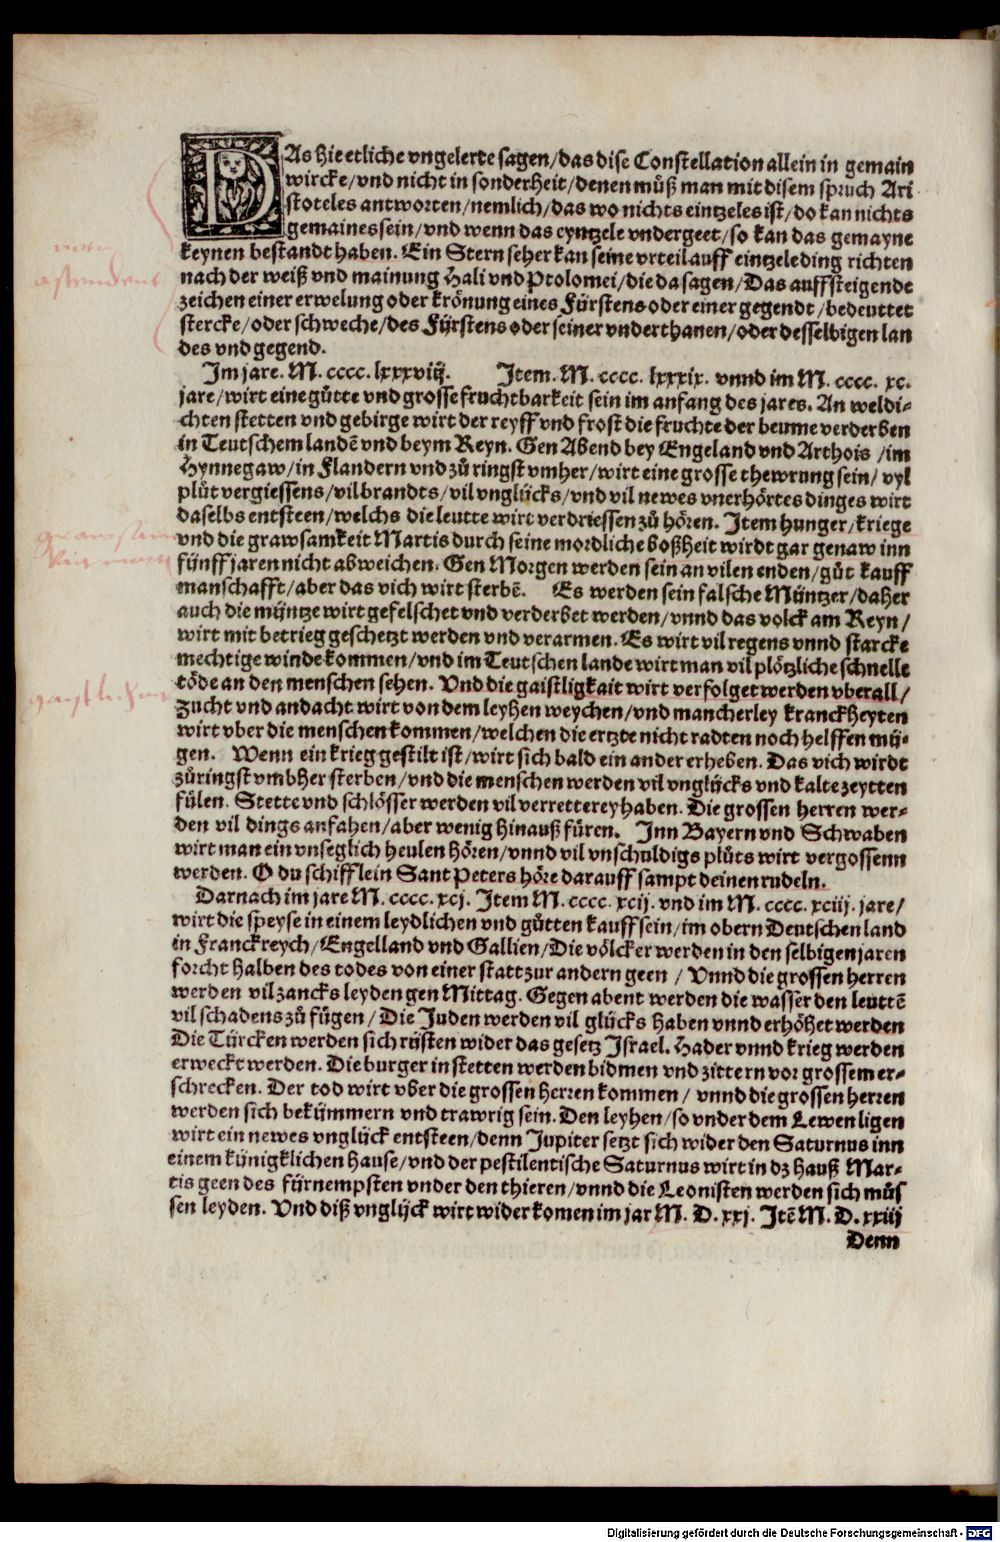 DAs hie etliche vngelerte sagen/das dise Constellation allein in gemain
wircke/vnd nicht in sonderheit/denen můß man mit disem spruch Ari
stoteles antworten/nemlich/das wo nichts eintzeles ist/do kan nichts
gemaines sein/vnd wenn das eyntzele vndergeet/so kan das gemayne
keynen bestandt haben. Ein Stern seher kan seine vrteil auff eintzele ding richten
nach der weiß vnd mainung Hali vnd Ptolomei/die da sagen/Das auffsteigende
zeichen einer erwelung oder krönung eines Fürstens oder einer gegendt/bedeuttet
stercke/oder schweche/des Fürstens oder seiner vnderthanen/oder desselbigen lan
des vnd gegend.
Im jare. M. cccc. lxxxviij. Item. M. cccc. lxxxix. vnnd im M. cccc. xc.
jare/wirt eine gůtte vnd grosse fruchtbarkeit sein im anfang des jares. An weldi-
chten stetten vnd gebirge wirt der reyff vnd frost die fruchte der beume verderben
in Teutschem landē vnd beym Reyn. Gen Abend bey Engeland vnd Arthois /im
Hynnegaw/in Flandern vnd zů ringst vmher/wirt eine grosse thewrung sein/ vyl
plůt vergiessens/vil brandts/vil vnglücks/vnd vil newes vnerhörtes dinges wirt
daselbs entsteen/welchs die leutte wirt verdriessen zů hören. Item hunger/kriege
vnd die grawsamkeit Martis durch seine mordliche boßheit wirdt gar genaw inn
fünff jaren nicht abweichen. Gen Morgen werden sein an vilen enden/gůt kauff
manschafft/aber das vich wirt sterbē. Es werden sein falsche Müntzer/daher
auch die müntze wirt gefelschet vnd verderbet werden/vnnd das volck am Reyn/
wirt mit betrieg geschetzt werden vnd verarmen. Es wirt vil regens vnnd starcke
mechtige winde kommen/vnd im Teutschen lande wirt man vil plötzliche schnelle
töde an den menschen sehen. Vnd die gaistligkait wirt verfolget werden vberall/
zucht vnd andacht wirt von dem leyhen weychen/vnd mancherley kranckheyten
wirt vber die menschen kommen/welchen die ertzte nicht radten noch helffen mü-
gen. Wenn ein krieg gestilt ist/wirt sich bald ein ander erheben. Das vich wirdt
zůringst vmbher sterben/vnd die menschen werden vil vnglücks vnd kalte zeytten
fülen. Stette vnd schlösser werden vil verretterey haben. Die grossen herren wer-
den vil dings anfahen/aber wenig hinauß füren. Inn Bayern vnd Schwaben
wirt man ein vnseglich heulen hören/vnnd vil vnschuldigs plůts wirt vergossenn
werden. O du schifflein Sant Peters höre darauff sampt deinen rudeln.
Darnach im jare M. cccc. xcj. Item M. cccc. xcij. vnd im M. cccc. xciij. jare/
wirt die speyse in einem leydlichen vnd gůtten kauff sein/im obern Deutschen land
in Franckreych/Engelland vnd Gallien/Die völcker werden in den selbigen jaren
forcht halben des todes von einer statt zur andern geen / Vnnd die grossen herren
werden vil zancks leyden gen Mittag. Gegen abent werden die wasser den leuttē
vil schadens zů fügen/Die Juden werden vil glücks haben vnnd erhöhet werden
Die Türcken werden sich rüsten wider das gesetz Israel. Hader vnnd krieg werden
erweckt werden. Die burger in stetten werden bidmen vnd zittern vor grossem er-
schrecken. Der tod wirt vber die grossen herren kommen/ vnnd die grossen herren
werden sich bekümmern vnd trawrig sein. Den leyhen/so vnder dem Lewen ligen
wirt ein newes vnglück entsteen/denn Jupiter setzt sich wider den Saturnus inn
einem künigklichen hause/vnd der pestilentische Saturnus wirt in dz hauß Mar-
tis geen des fürnempsten vnder den thieren/vnnd die Leonisten werden sich můs
sen leyden. Vnd diß vnglück wirt wider komen im jar M. D. xxj. Itē M. D. xxiij
Denn
Digitalisierung gefördert durch die Deutsche Forschungsgemeinschaft - DFG